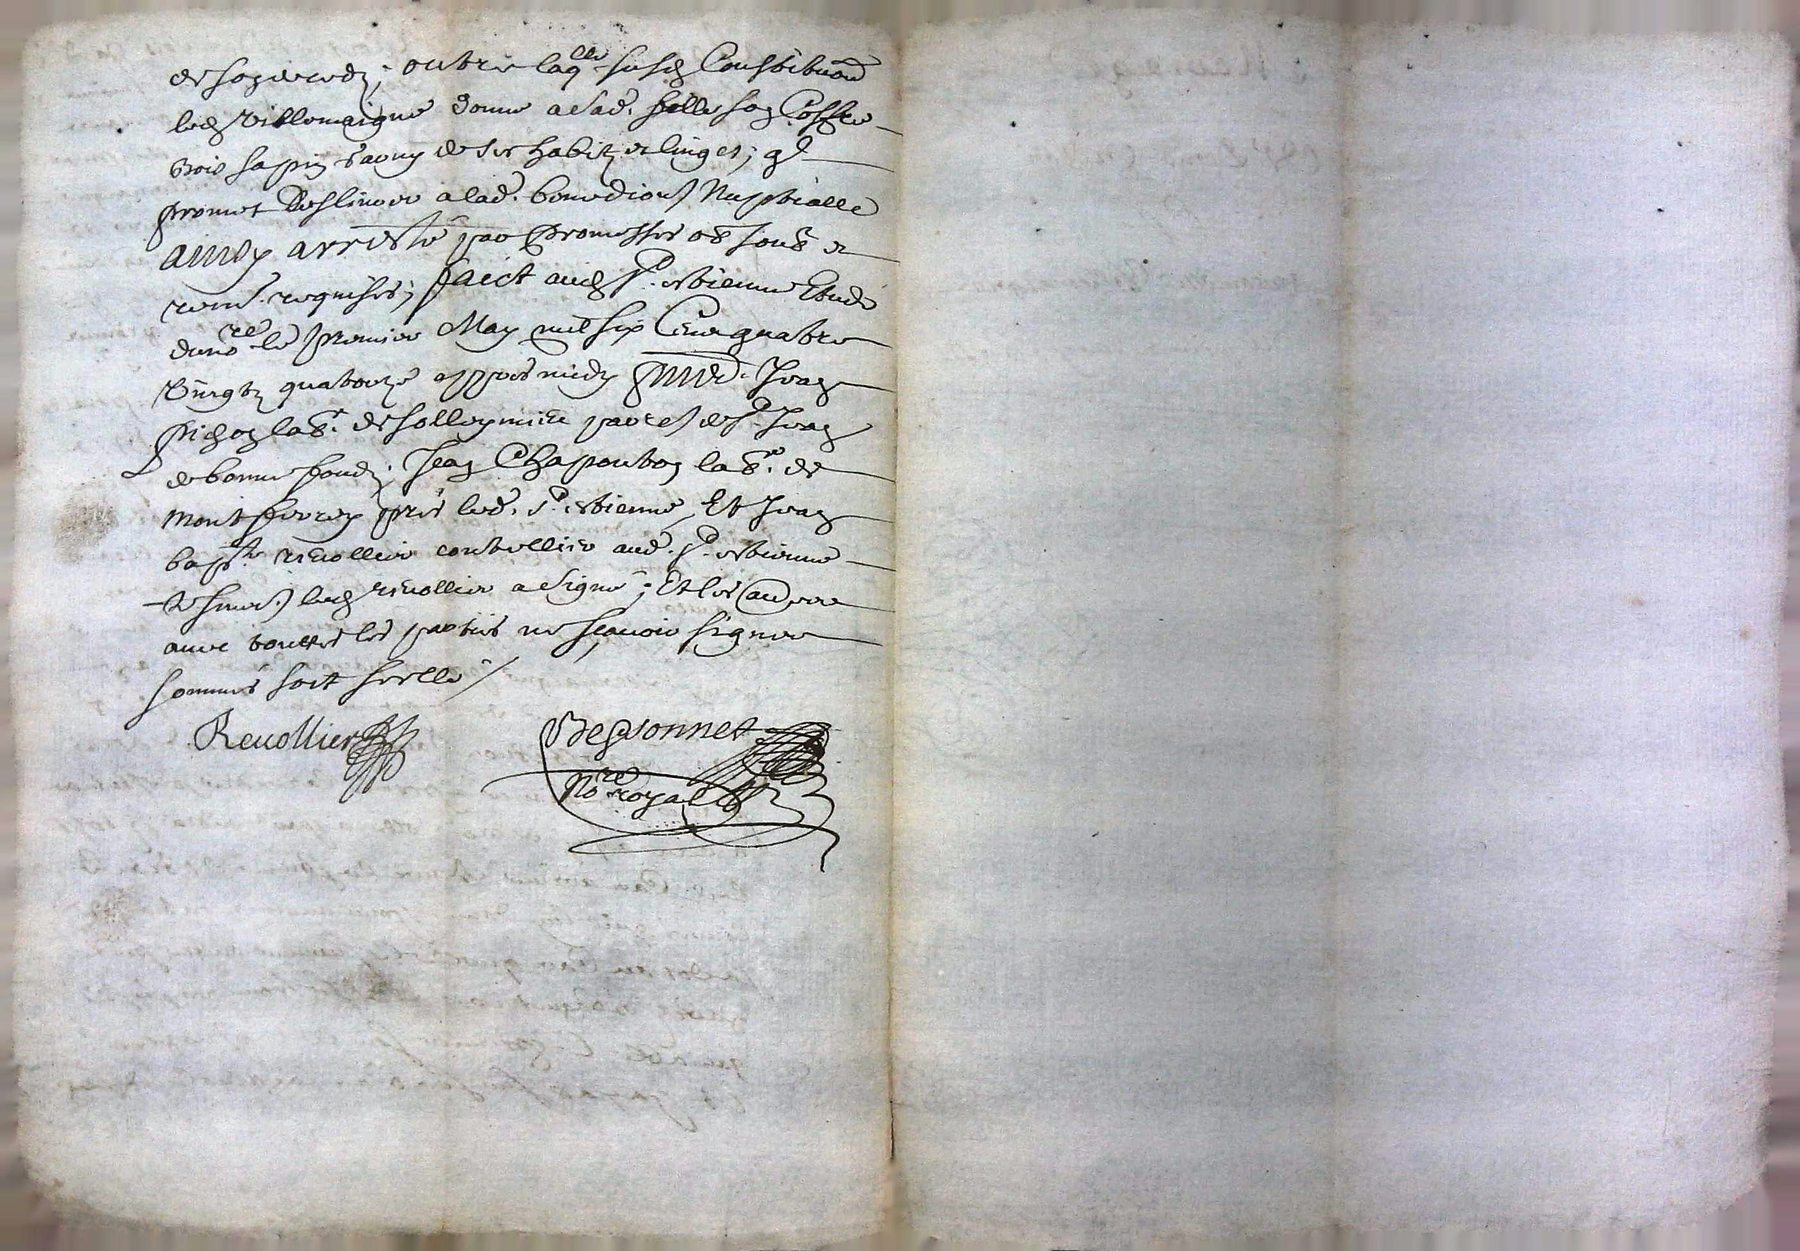 de son decedz; outre laq^lle susd Constitution
led Villemaigne donne a sad. fille son Coffre
bois sapin garny de ses habitz et linges; ql
promet deslivrer a lad. benediction Nuptialle
ainsy arresté par promesses ob soub et
ren. requises; faict aud St. estienne Etude
du no^re le premier May mil six Cent quatre
vingtz quatorze appres midy pnts. Jean
pichon lab^r. de solleymieu parois de St Jean
de bonnefondz; Jean Chapouton lab^r. de
montferrey pres led. St. estienne, Et Jean
bap^te revollier contrellier aud. St. estienne
tesmoins led revollier a signé; Et les autres
avec touttes les parties ne sçavoir signer
sommés soit scellé /
Revollier
Bessonnet
No^re royal